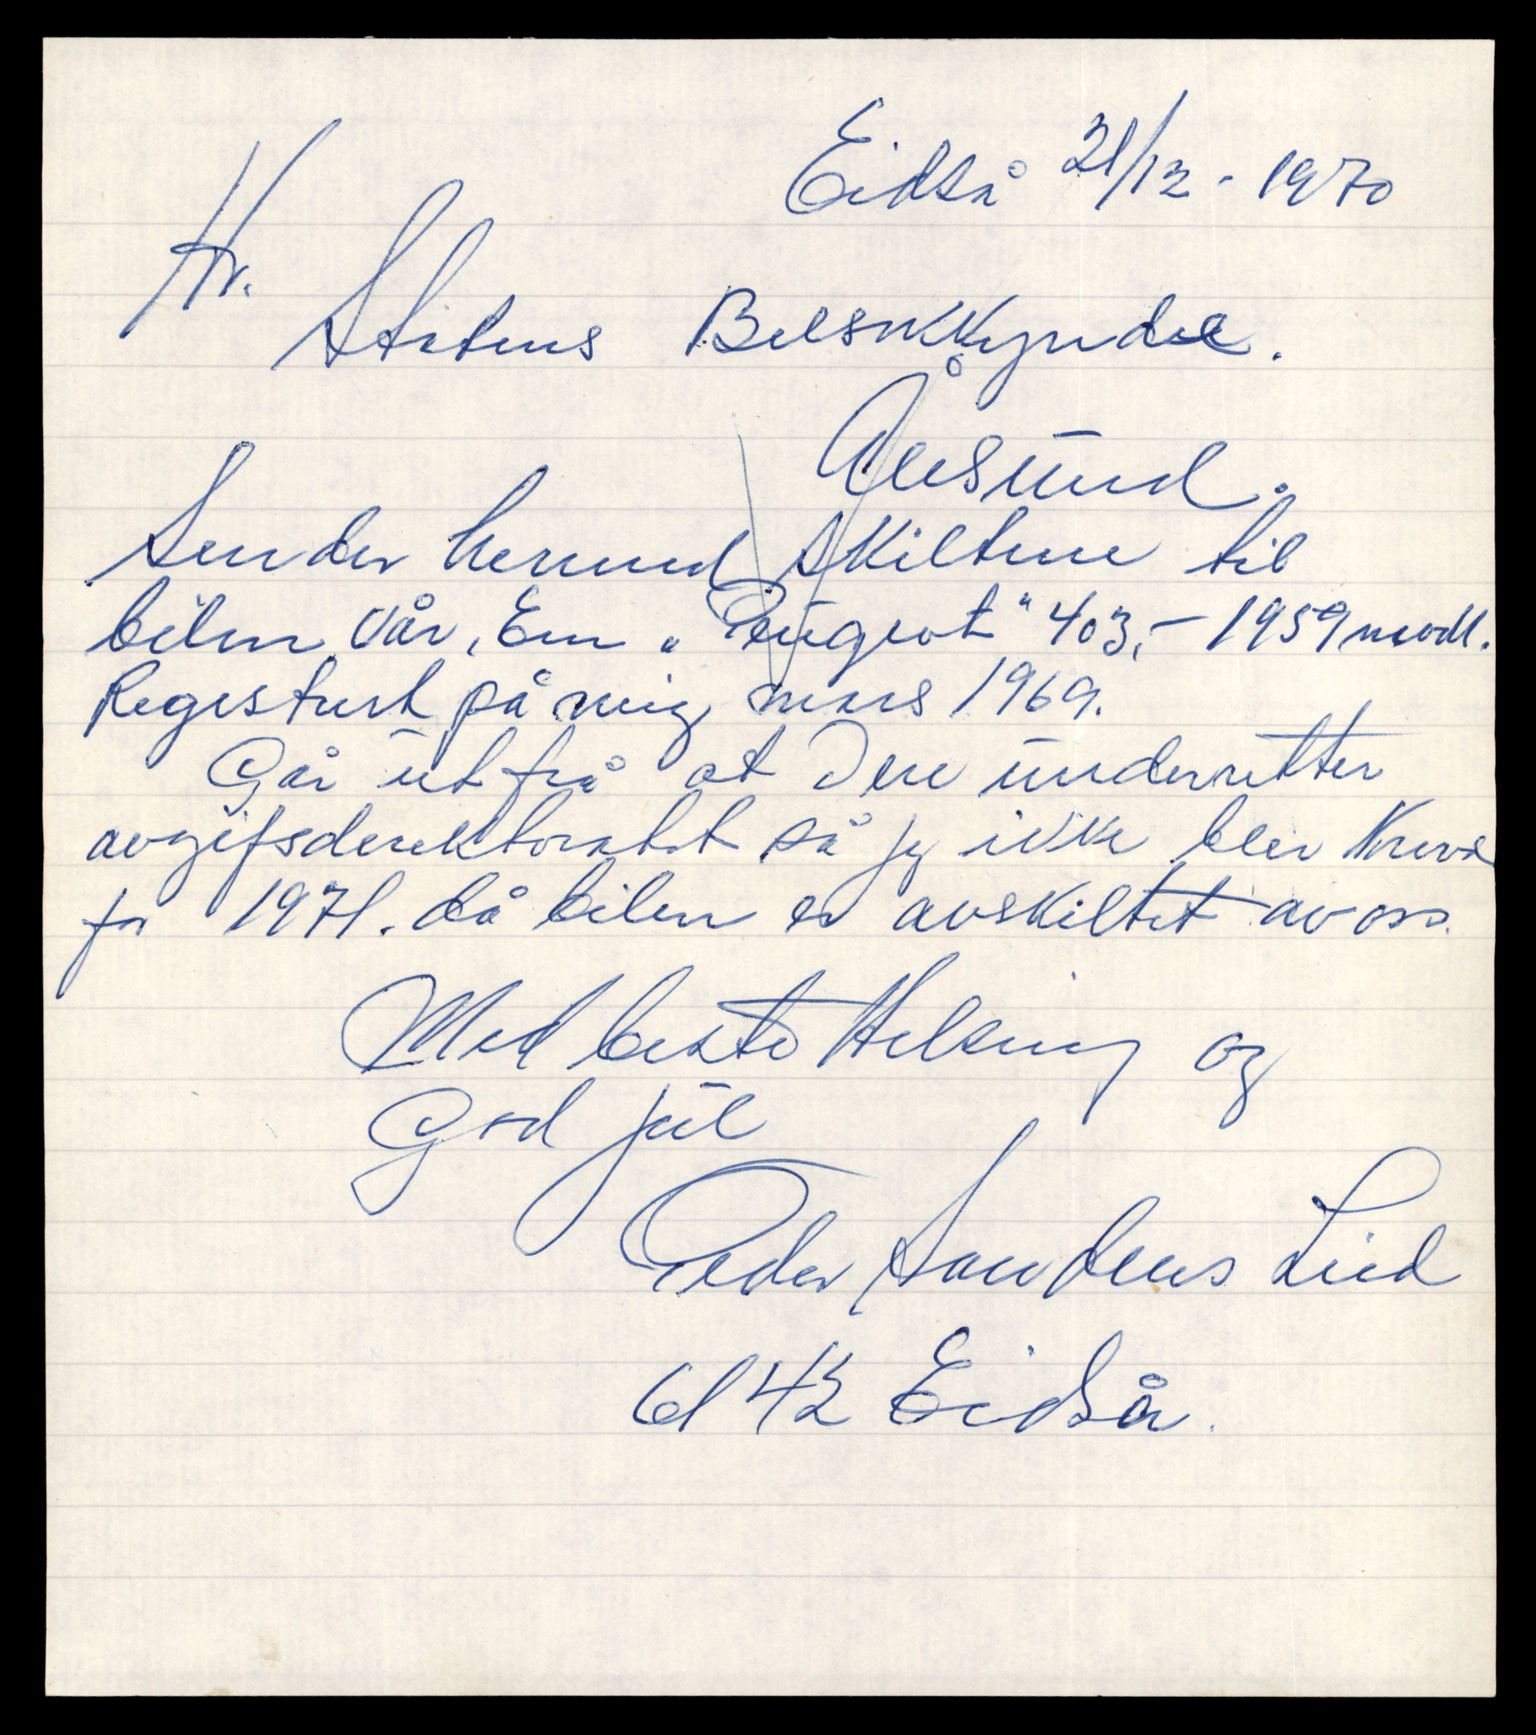 Eidså 21/12 - 1970
Hr.
Statens Bilsakkyndie.
Ålesund.
Sender hermed skiltene til
bilen vår, En "Peugeot" 403,- 1959 modl.
Regestert på mig mars 1969.
Går ut frå at Dere underretter
avgifsdirektoratet så jeg ikke blir Krevd
for 1971. då bilen er avskiltet av oss.
Med beste Helsing og
God jul
Peder Lid
6142 Eidså.